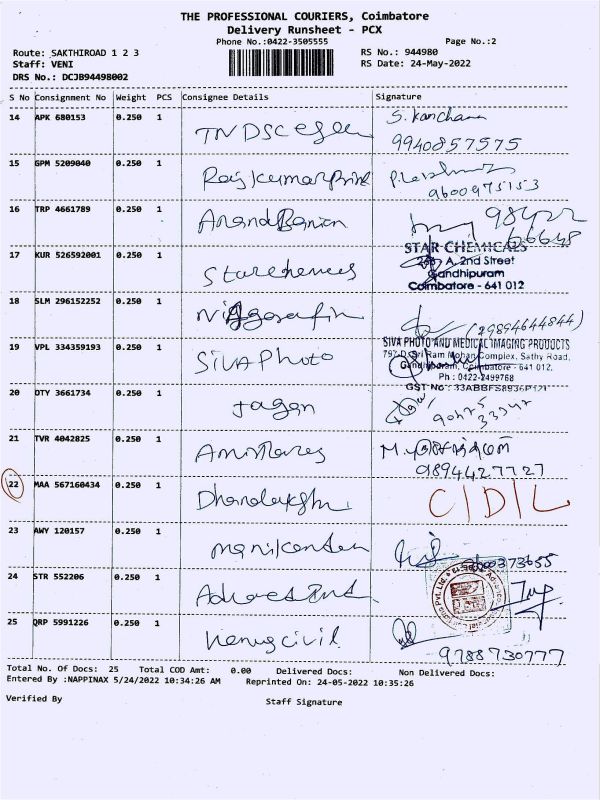 THE PROFESSIONAL COURIERS, Coimbatore
Delivery Runsheet - PCX
Phone No.:0422-3505555
Page No.:2
Route: SAKTHIROAD 1 2 3
RS No.: 944980
Staff: VENI
RS Date: 24-May-2022
DRS No.: DCJB94498002
S No Consignment No Weight PCS Consignee Details Signature
14 APK 680153 0.250 1 TNDSC S. Kanchana
9940857575
15 GPM 5209040 0.250 1 Rajkumar Print
9600975153
16 TRP 4661789 0.250 1 Anand 98422
66648
STAR CHEMICALS
A, 2nd Street
Gandhipuram
Coimbatore - 641 012
17 KUR 526592001 0.250 1
18 SLM 296152252 0.250 1 (29894644844)
19 VPL 334359193 0.250 1 SIVA Photo
SIVA PHOTO AND MEDICAL IMAGING PRODUCTS
Sri Ram Mohan Complex, Sathy Road,
Gandhipuram, Coimbatore - 641 012.
Ph : 0422-2499768
GST No : 33ABBFS8936P1Z1
20 DTY 3661734 0.250 1 Jagan
21 TVR 4042825 0.250 1
9894427727
22 MAA 567160434 0.250 1 C/D/L
23 AWY 120157 0.250 1 manikandan
24 STR 552206 0.250 1
25 QRP 5991226 0.250 1 civil
9788730777
Total No. Of Docs: 25 Total COD Amt: 0.00 Delivered Docs: Non Delivered Docs:
Entered By :NAPPINAX 5/24/2022 10:34:26 AM Reprinted On: 24-05-2022 10:35:26
Verified By Staff Signature